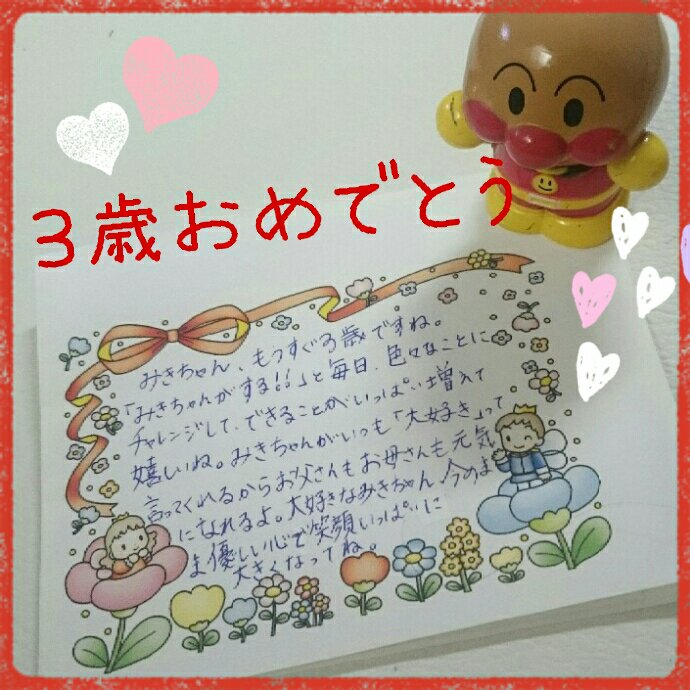 3歳おめでとう
みきちゃん、もうすぐ3歳ですね。
「みきちゃんがする!!」と毎日、色々なことに
チャレンジして、できることがいっぱい増えて
嬉しいね。みきちゃんがいつも「大好き」って
言ってくれるからお父さんもお母さんも元気
になれるよ。大好きなみきちゃん、今のま
ま優しい心で笑顔いっぱいに
大きくなってね。